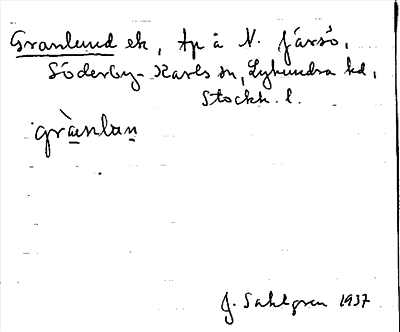 Granlund ek, tp å N. Järsö,
Söderby-Karls sn, Lyhundra hd,
Stockh. l.
grànlan
J. Sahlgren 1937